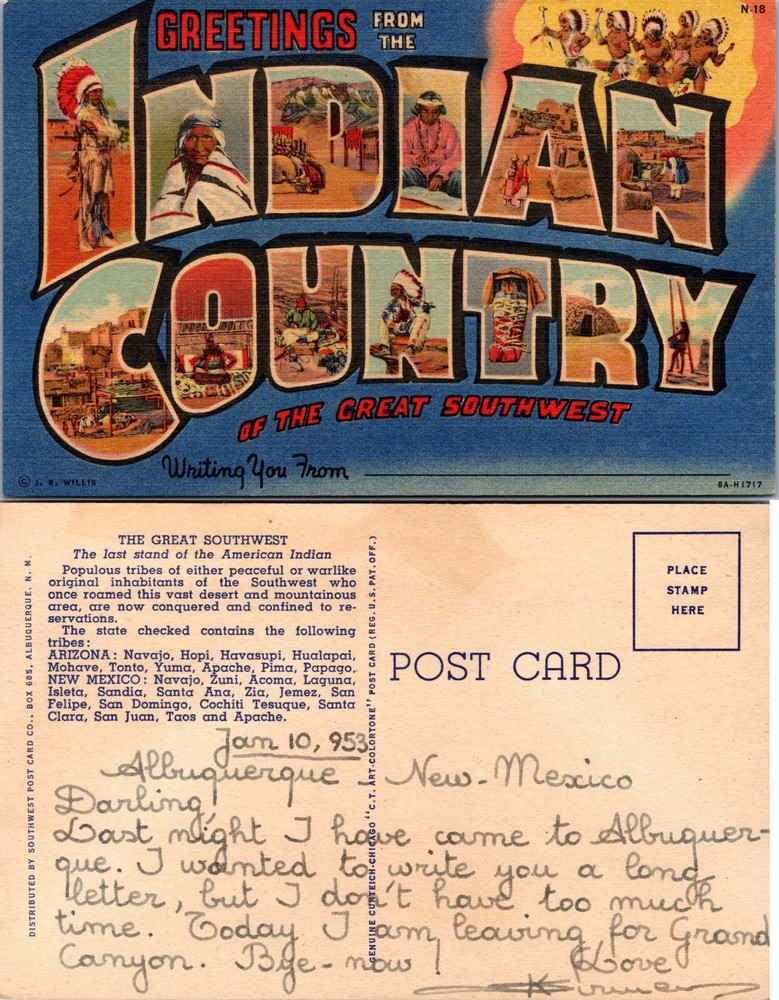 GREETINGS FROM THE
N-18
INDIAN
COUNTRY
OF THE GREAT SOUTHWEST
Writing You From
© J. R. WILLIS
8A-H1717
THE GREAT SOUTHWEST
The last stand of the American Indian
Populous tribes of either peaceful or warlike
original inhabitants of the Southwest who
once roamed this vast desert and mountainous
area, are now conquered and confined to re-
servations.
The state checked contains the following
tribes:
ARIZONA: Navajo, Hopi, Havasupi, Hualapai,
Mohave, Tonto, Yuma, Apache, Pima, Papago.
NEW MEXICO: Navajo, Zuni, Acoma, Laguna,
Isleta, Sandia, Santa Ana, Zia, Jemez, San
Felipe, San Domingo, Cochiti Tesuque, Santa
Clara, San Juan, Taos and Apache.
DISTRIBUTED BY SOUTHWEST POST CARD CO., BOX 685, ALBUQUERQUE, N. M.
GENUINE CURTEICH-CHICAGO "C.T. ART-COLORTONE" POST CARD (REG. U.S. PAT. OFF.)
POST CARD
PLACE
STAMP
HERE
Jan 10, 953
Albuquerque - New-Mexico
Darling!
Last night I have come to Albuquer-
que. I wanted to write you a long
letter, but I don't have too much
time. Today I am leaving for Grand
Canyon. Bye-now! Love